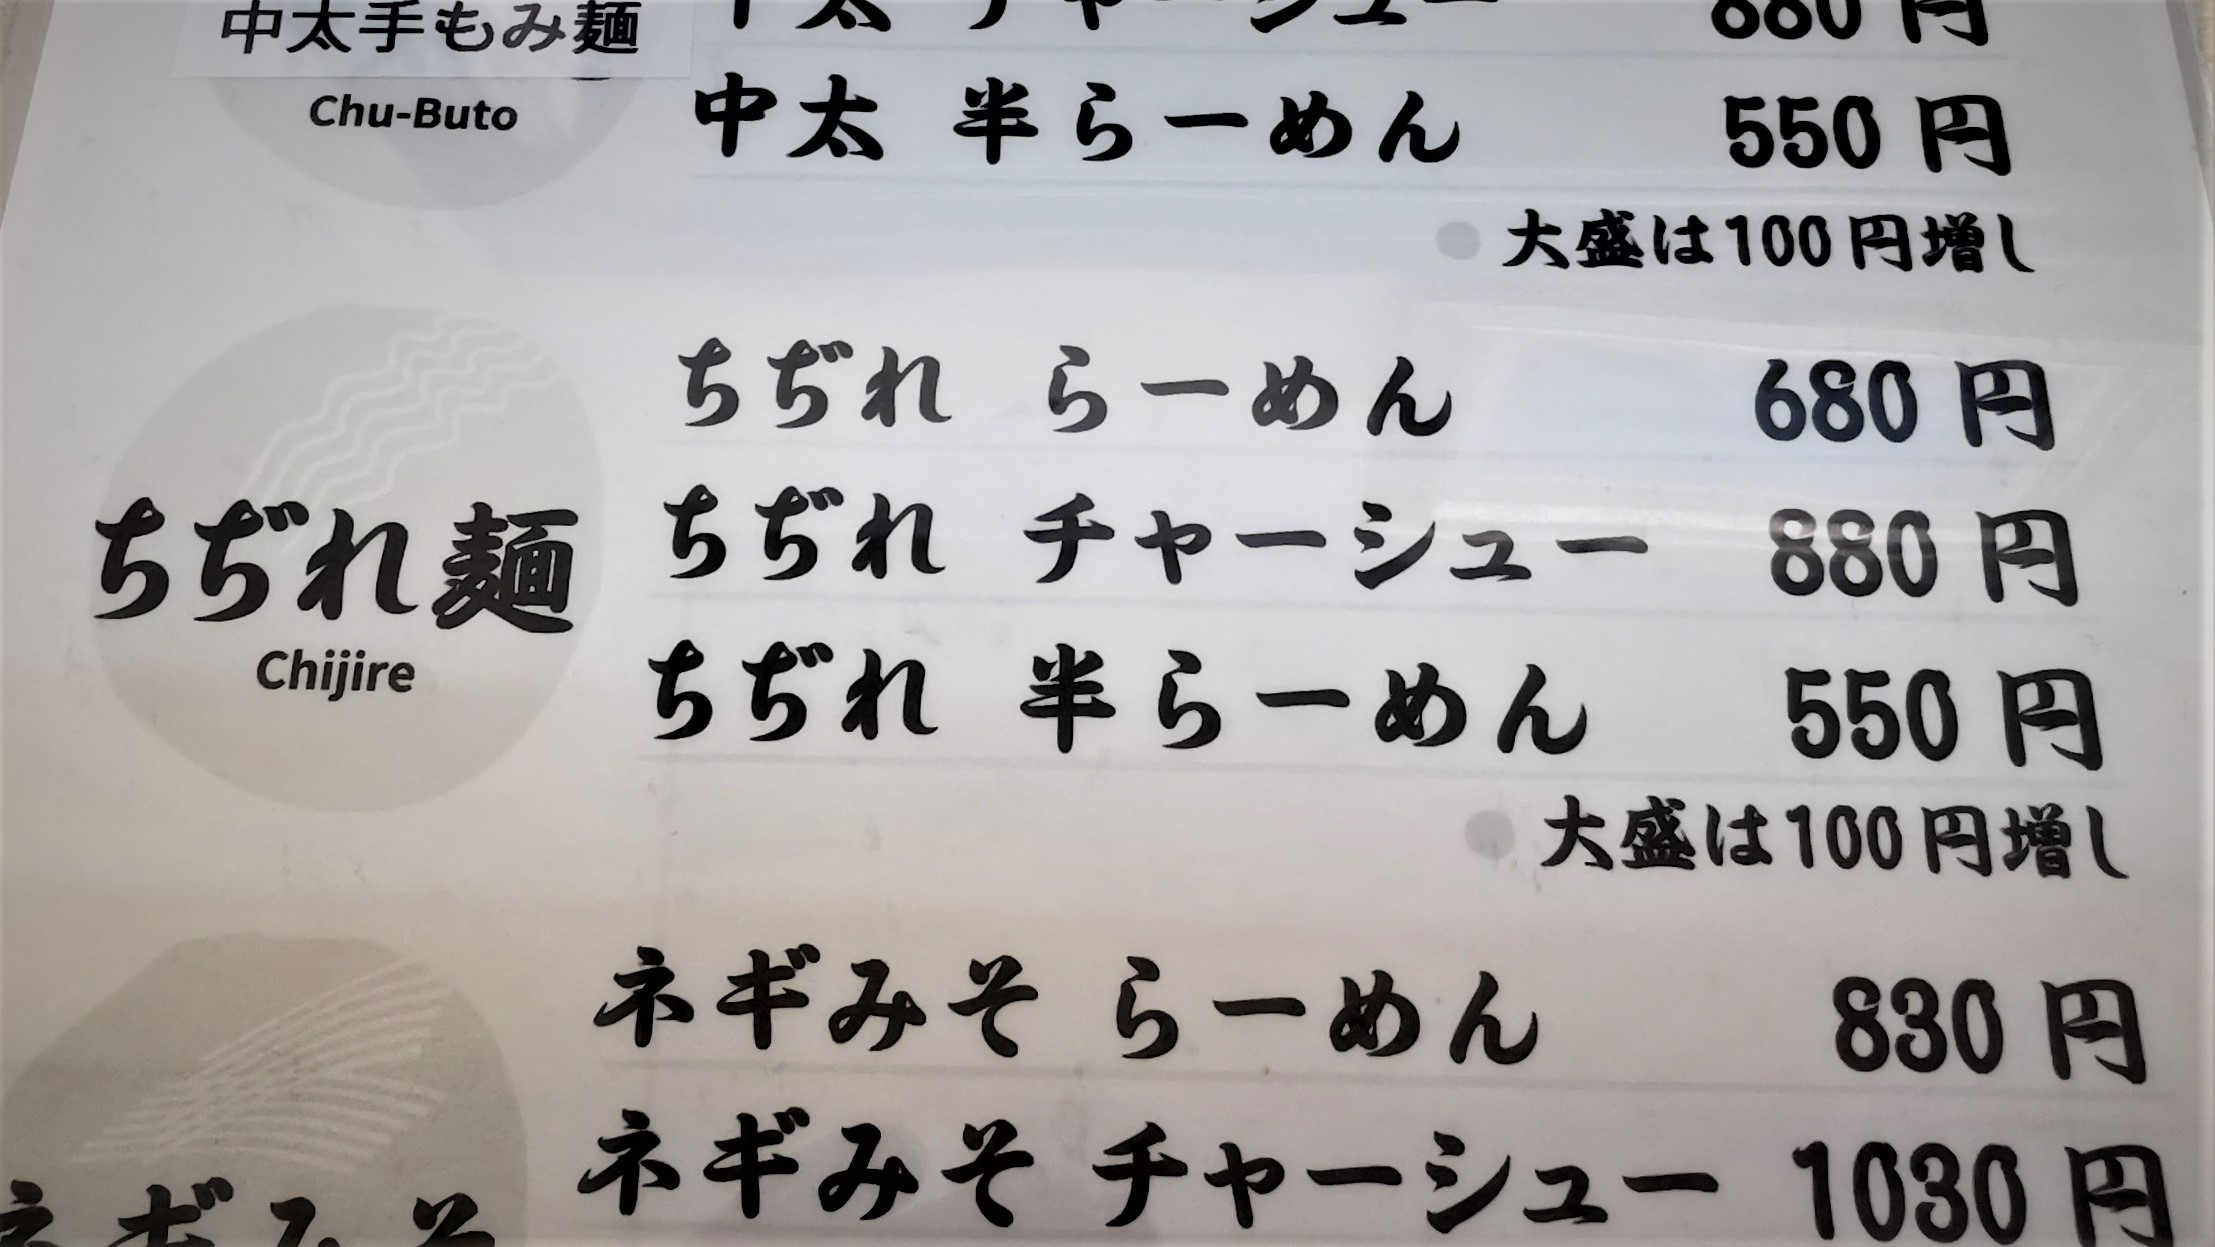 中太手もみ麺
Chu-Buto
中太 チャーシュー 880円
中太 半らーめん 550円
大盛は100円増し
ちぢれ麺
Chijire
ちぢれ らーめん 680円
ちぢれ チャーシュー 880円
ちぢれ 半らーめん 550円
大盛は100円増し
ネギみそ
ネギみそ らーめん 830円
ネギみそ チャーシュー 1030円